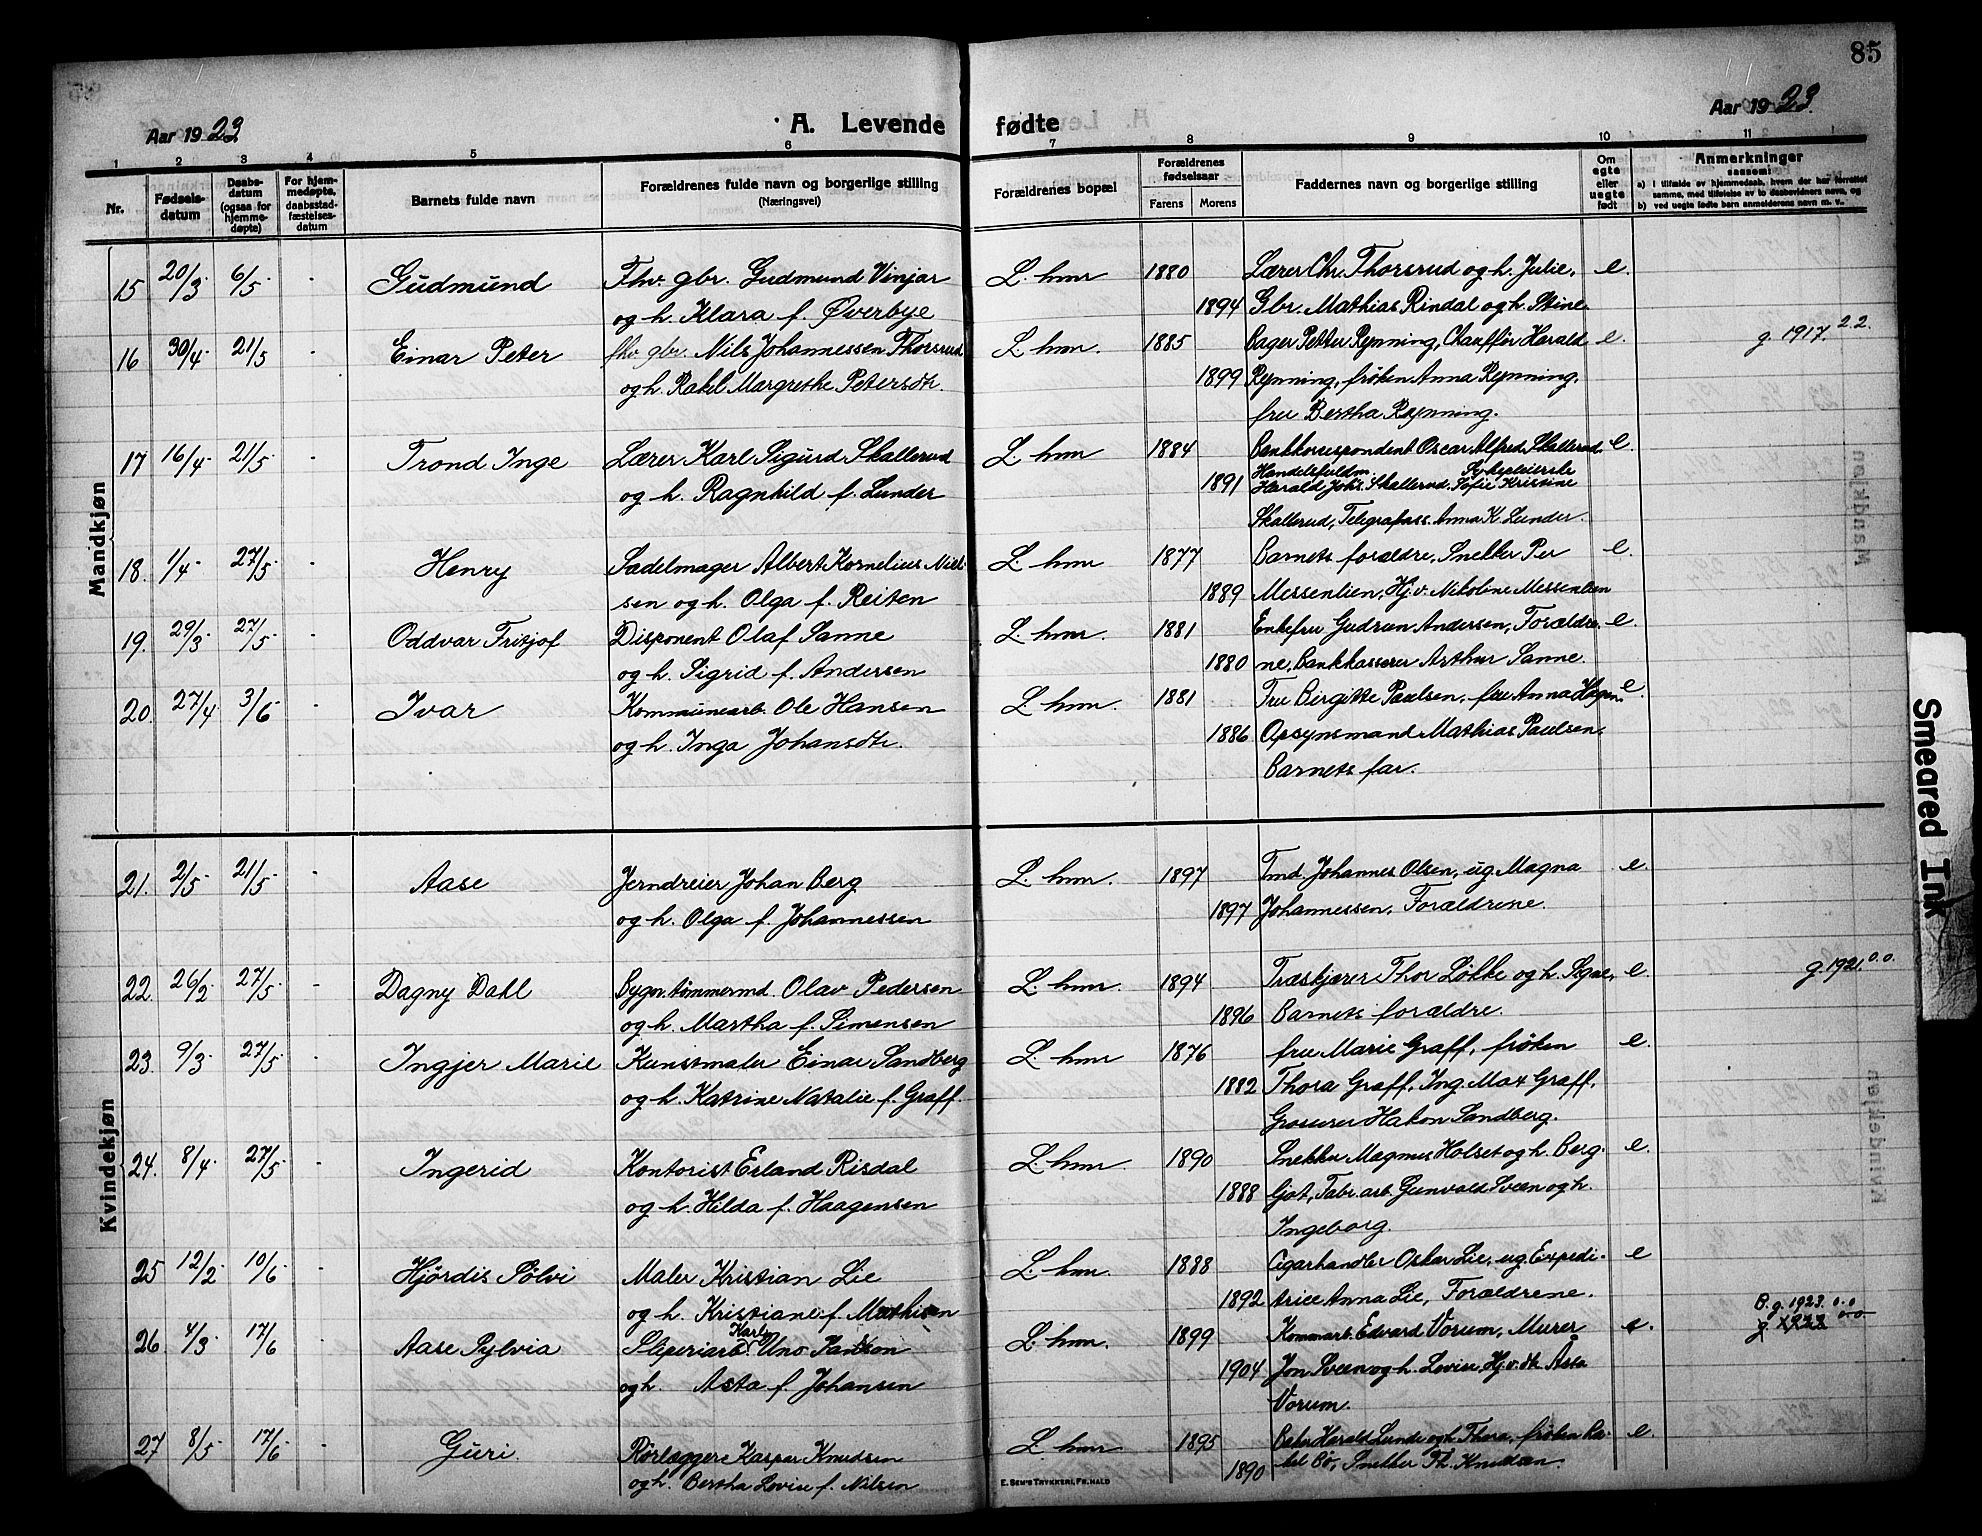 85
Aar 1923
A. Levende fødte
Aar 1923.
1 2 3 4 5 6 7 8 9 10 11
Nr.
Fødselsdatum
Daabsdatum (ogsaa for hjemmedøpte)
For hjemmedøpte, daabsstadfæstelsesdatum
Barnets fulde navn
Forældrenes fulde navn og borgerlige stilling
(Næringsvei)
Forældrenes bopæl
Forældrenes fødselsaar
Farens
Morens
Faddernes navn og borgerlige stilling
Om egte eller uegte født
Anmerkninger
saasom:
a) i tilfælde av hjemmedaab, hvem der har forrettet
samme, med tilføielse av to daabsvidners navn, og
b) ved uegte fødte barn anmelderens navn m. v.
Mandkjøn
15 20/3 6/5 - Gudmund Fhv. gbr. Gudmund Vinjar L.hmr 1880 Lærer Chr. Thorsrud og h. Julie, e.
og h. Klara f. Øverbye 1894 Gbr. Mathias Rindal og h. Stine
16 30/4 21/5 - Einar Peter fhv. gbr. Nils Johannessen Thorsrud L.hmr. 1885 Bager Petter Rynning, Chauffør Harald e. g. 1917. 2.2.
og h. Rakel Margrethe Petersdtr. 1899 Rynning, frøken Anna Rynning,
fru Bertha Rynning.
17 16/4 21/5 - Trond Inge Lærer Karl Sigurd Skallerud L.hmr 1884 Bankkorrespondent Oscar Alfred Skallerud, e
og h. Ragnhild f. Lunder 1891 Handelsfuldm. Harald Johs. Skallerud. Sykepleierske Sofie Kristine
Skallerud, Telegrafass. Anna K. Lunder.
18. 1/4 27/5 - Henry Sadelmager Albert Kornelius Niel- L.hmr 1877 Barnets forældre, Snekker Per e.
sen og h. Olga f. Reiten 1889 Messenlien, Hj.v. Nikoline Messenlien
19. 29/3 27/5 - Oddvar Fritjof Disponent Olaf Sanne L.hmr. 1881 Enkefru Gudrun Andersen, Forældre- e.
og h. Sigrid f. Andersen 1880 ne, Bankkasserer Arthur Sanne.
20. 27/4 3/6 - Ivar Kommunearb. Ole Hansen L.hmr. 1881 Fru Birgitte Paulsen, fru Anna Hagen, e.
og h. Inga Johansdtr. 1886 Opsynsmand Mathias Paulsen,
Barnets far.
Kvindekjøn
21. 2/5 21/5 - Aase Jerndreier Johan Berg L.hmr. 1897 Tmd. Johannes Olsen, ug. Magna e.
og h. Olga f. Johannessen 1897 Johannessen, Forældrene.
22. 26/2 27/5 - Dagny Dahl Bygn.tømmermd. Olav Pedersen L.hmr. 1894 Træskjærer Thor Løkke og h. e. g. 1921. 0.0.
og h. Martha f. Simensen 1896 Barnets forældre.
23. 9/3 27/5 - Ingjer Marie Kunstmaler Einar Sandberg L.hmr 1876 fru Marie Graff, frøken e.
og h. Katrine Natalie f. Graff. 1882 Thora Graff, Ing. Max Graff,
Grosserer Hakon Sandberg.
24. 8/4 27/5 - Ingerid Kontorist Erland Risdal L.hmr. 1890 Snekker Magnus Holset og h. Berg- e.
og h. Hilda f. Haagensen 1888 ljot, Fabr.arb. Gunvald Sveen og h.
Ingeborg.
25 12/2 10/6 - Hjørdis Sølvi Maler Kristian Lie L.hmr. 1888 Cigarhandler Oskar Lie, ug. Expedi- e
og h. Kristiane f. Mathisen 1892 trice Anna Lie, Forældrene.
26 4/3 17/6 - Aase Sylvia Sliperiarb. Karl Uno Karlson L.hmr. 1899 Kommarb. Edvard Vorum, Murer e. B. g. 1923. 0.0
og h. Asta f. Johansen 1904 Jon Sveen og h. Lovise, Hj.v. dtr. Åsta g. 1923 0.0
Vorum.
27 8/5 17/6 - Guri Rørlægger Kaspar Knudsen L.hmr 1895 Baker Harald Lunde og h. Thora, frøken Ra- e.
og h. Bertha Lovise f. Nilsen 1890 kel Bø, Snekker Th. Knudsen.
E. SEM'S TRYKKERI, FR.HALD
Smeared Ink